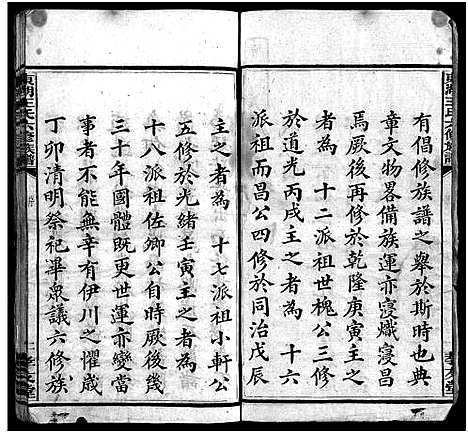 東湖王氏六修族譜
有倡修族譜之舉於斯時也典
章文物畧備族運亦寖熾寖昌
焉厥後再修於乾隆庚寅主之
者為十二派祖世槐公三修
於道光丙戌主之者為十六
派祖而昌公四修於同治戊辰
主之者為十七派祖小軒公
五修於光緒壬寅主之者為
十八派祖佐卿公自時厥後幾
三十年國體既更世運亦變當
事者不能無辛有伊川之懼歲
丁卯清明祭祀畢衆議六修族
東湖王氏六修族譜
序
二
孝友堂